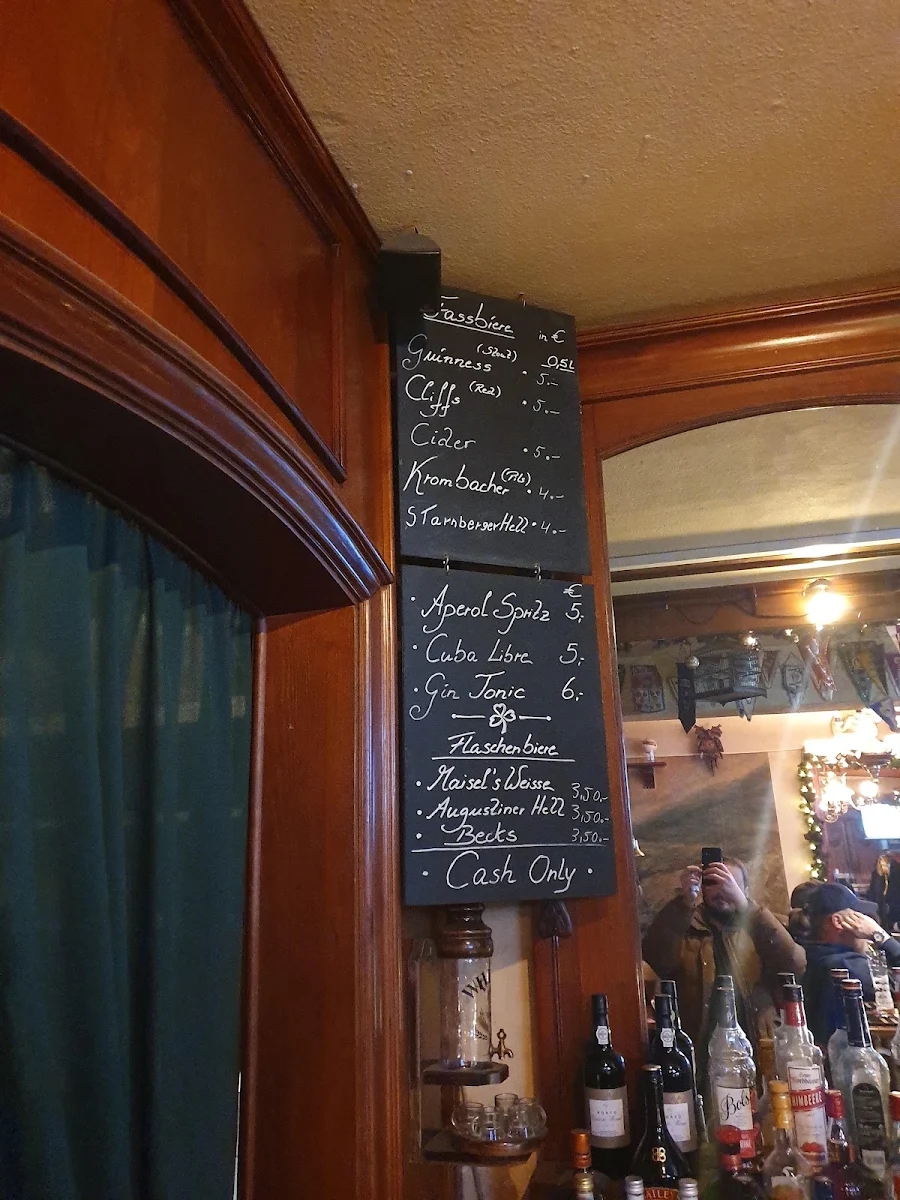 Fassbiere in €
Guinness (Stout) 0,5L
• 5.-
Cliffs (Red) • 5.-
Cider • 5.-
Krombacher (Pils) • 4.-
Starnberger Hell • 4.-
€
• Aperol Spritz 5,-
• Cuba Libre 5,-
• Gin Tonic 6,-
Flaschenbiere
• Maisel's Weisse 3,50.-
• Augustiner Hell 3,50.-
• Becks 3,50.-
• Cash Only •
WH
Bols
HIMBEERE
BAILEYS